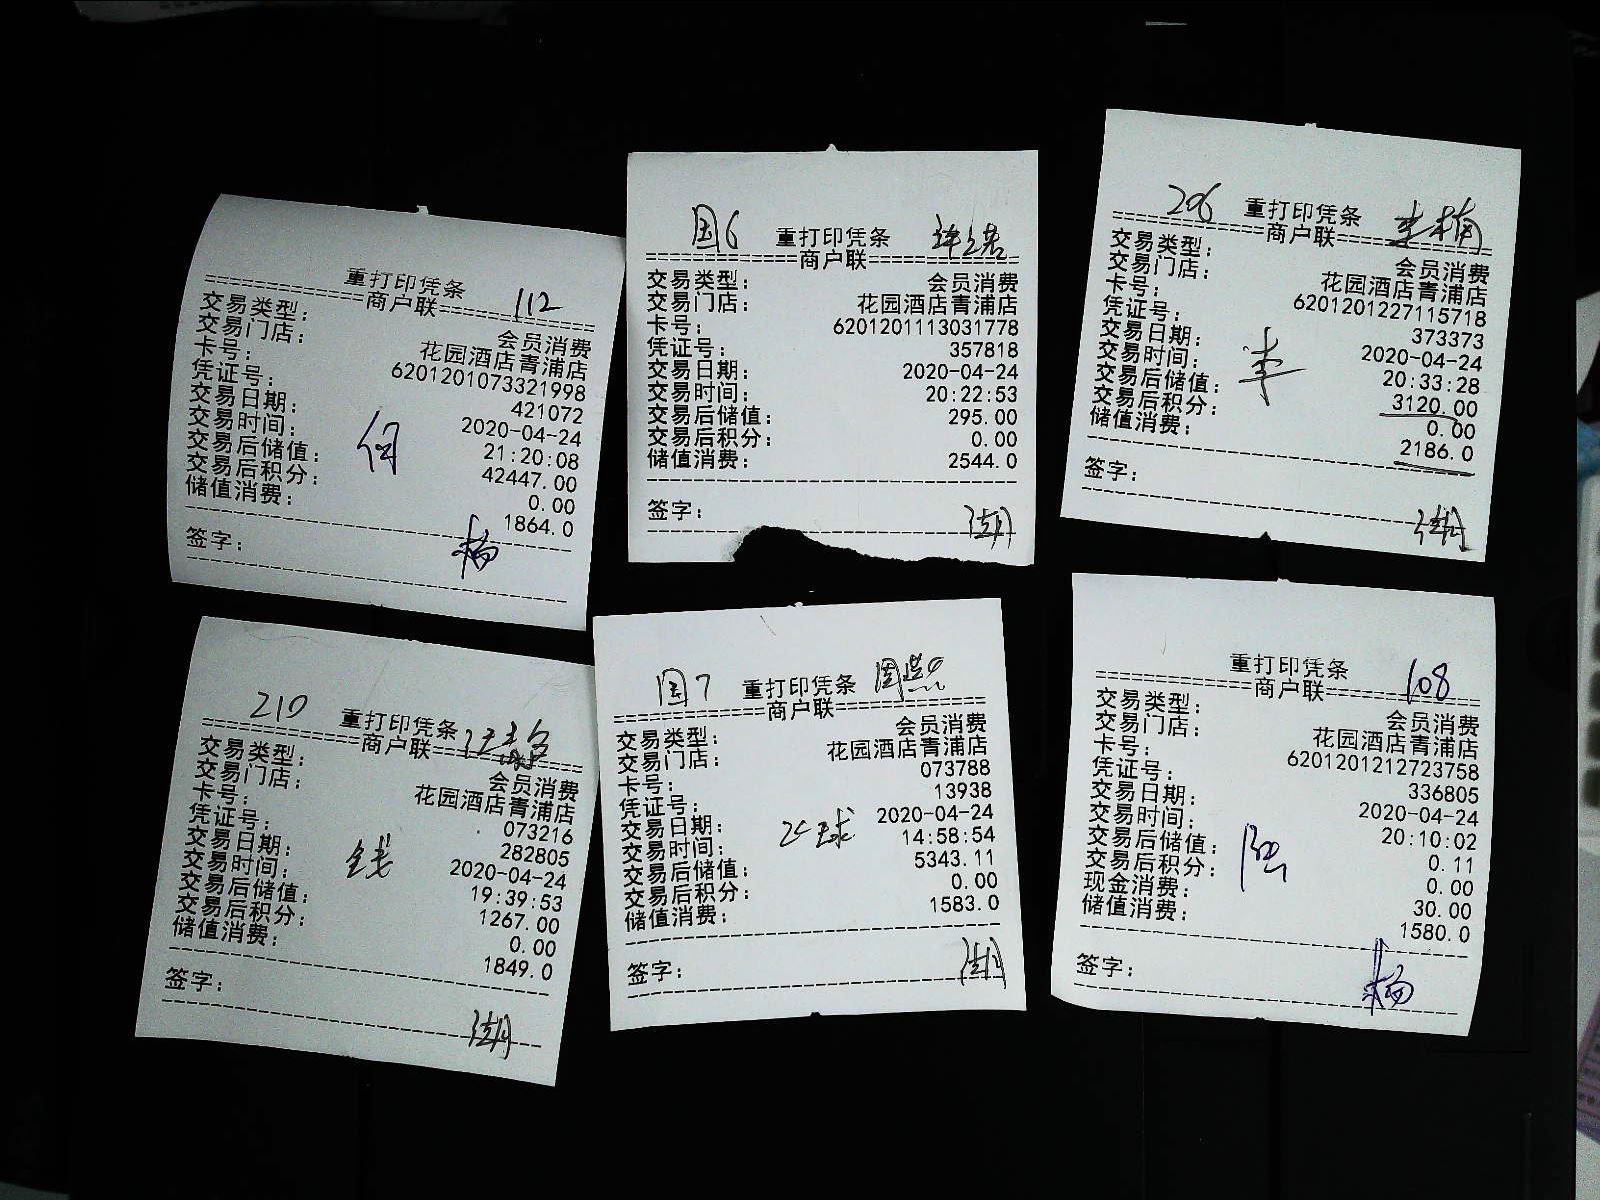 重打印凭条
商户联 112
交易类型: 会员消费
交易门店: 花园酒店青浦店
卡号: 6201201073321998
凭证号: 421072
交易日期: 2020-04-24
交易时间: 21:20:08
交易后储值: 42447.00
交易后积分: 0.00
储值消费: 1864.0
何
签字:
杨
国6 重打印凭条
商户联
交易类型: 会员消费
交易门店: 花园酒店青浦店
卡号: 6201201113031778
凭证号: 357818
交易日期: 2020-04-24
交易时间: 20:22:53
交易后储值: 295.00
交易后积分: 0.00
储值消费: 2544.0
签字:
206 重打印凭条 李楠
商户联
交易类型: 会员消费
交易门店: 花园酒店青浦店
卡号: 6201201227115718
凭证号: 373373
交易日期: 2020-04-24
交易时间: 20:33:28
交易后储值: 3120.00
交易后积分: 0.00
储值消费: 2186.0
李
签字:
210 重打印凭条
商户联
交易类型: 会员消费
交易门店: 花园酒店青浦店
卡号: 073216
凭证号: 282805
交易日期: 2020-04-24
交易时间: 19:39:53
交易后储值: 1267.00
交易后积分: 0.00
储值消费: 1849.0
钱
签字:
国7 重打印凭条
商户联
交易类型: 会员消费
交易门店: 花园酒店青浦店
卡号: 073788
凭证号: 13938
交易日期: 2020-04-24
交易时间: 14:58:54
交易后储值: 5343.11
交易后积分: 0.00
储值消费: 1583.0
签字:
重打印凭条
商户联 108
交易类型: 会员消费
交易门店: 花园酒店青浦店
卡号: 6201201212723758
凭证号: 336805
交易日期: 2020-04-24
交易时间: 20:10:02
交易后储值: 0.11
交易后积分: 0.00
现金消费: 30.00
储值消费: 1580.0
签字:
杨